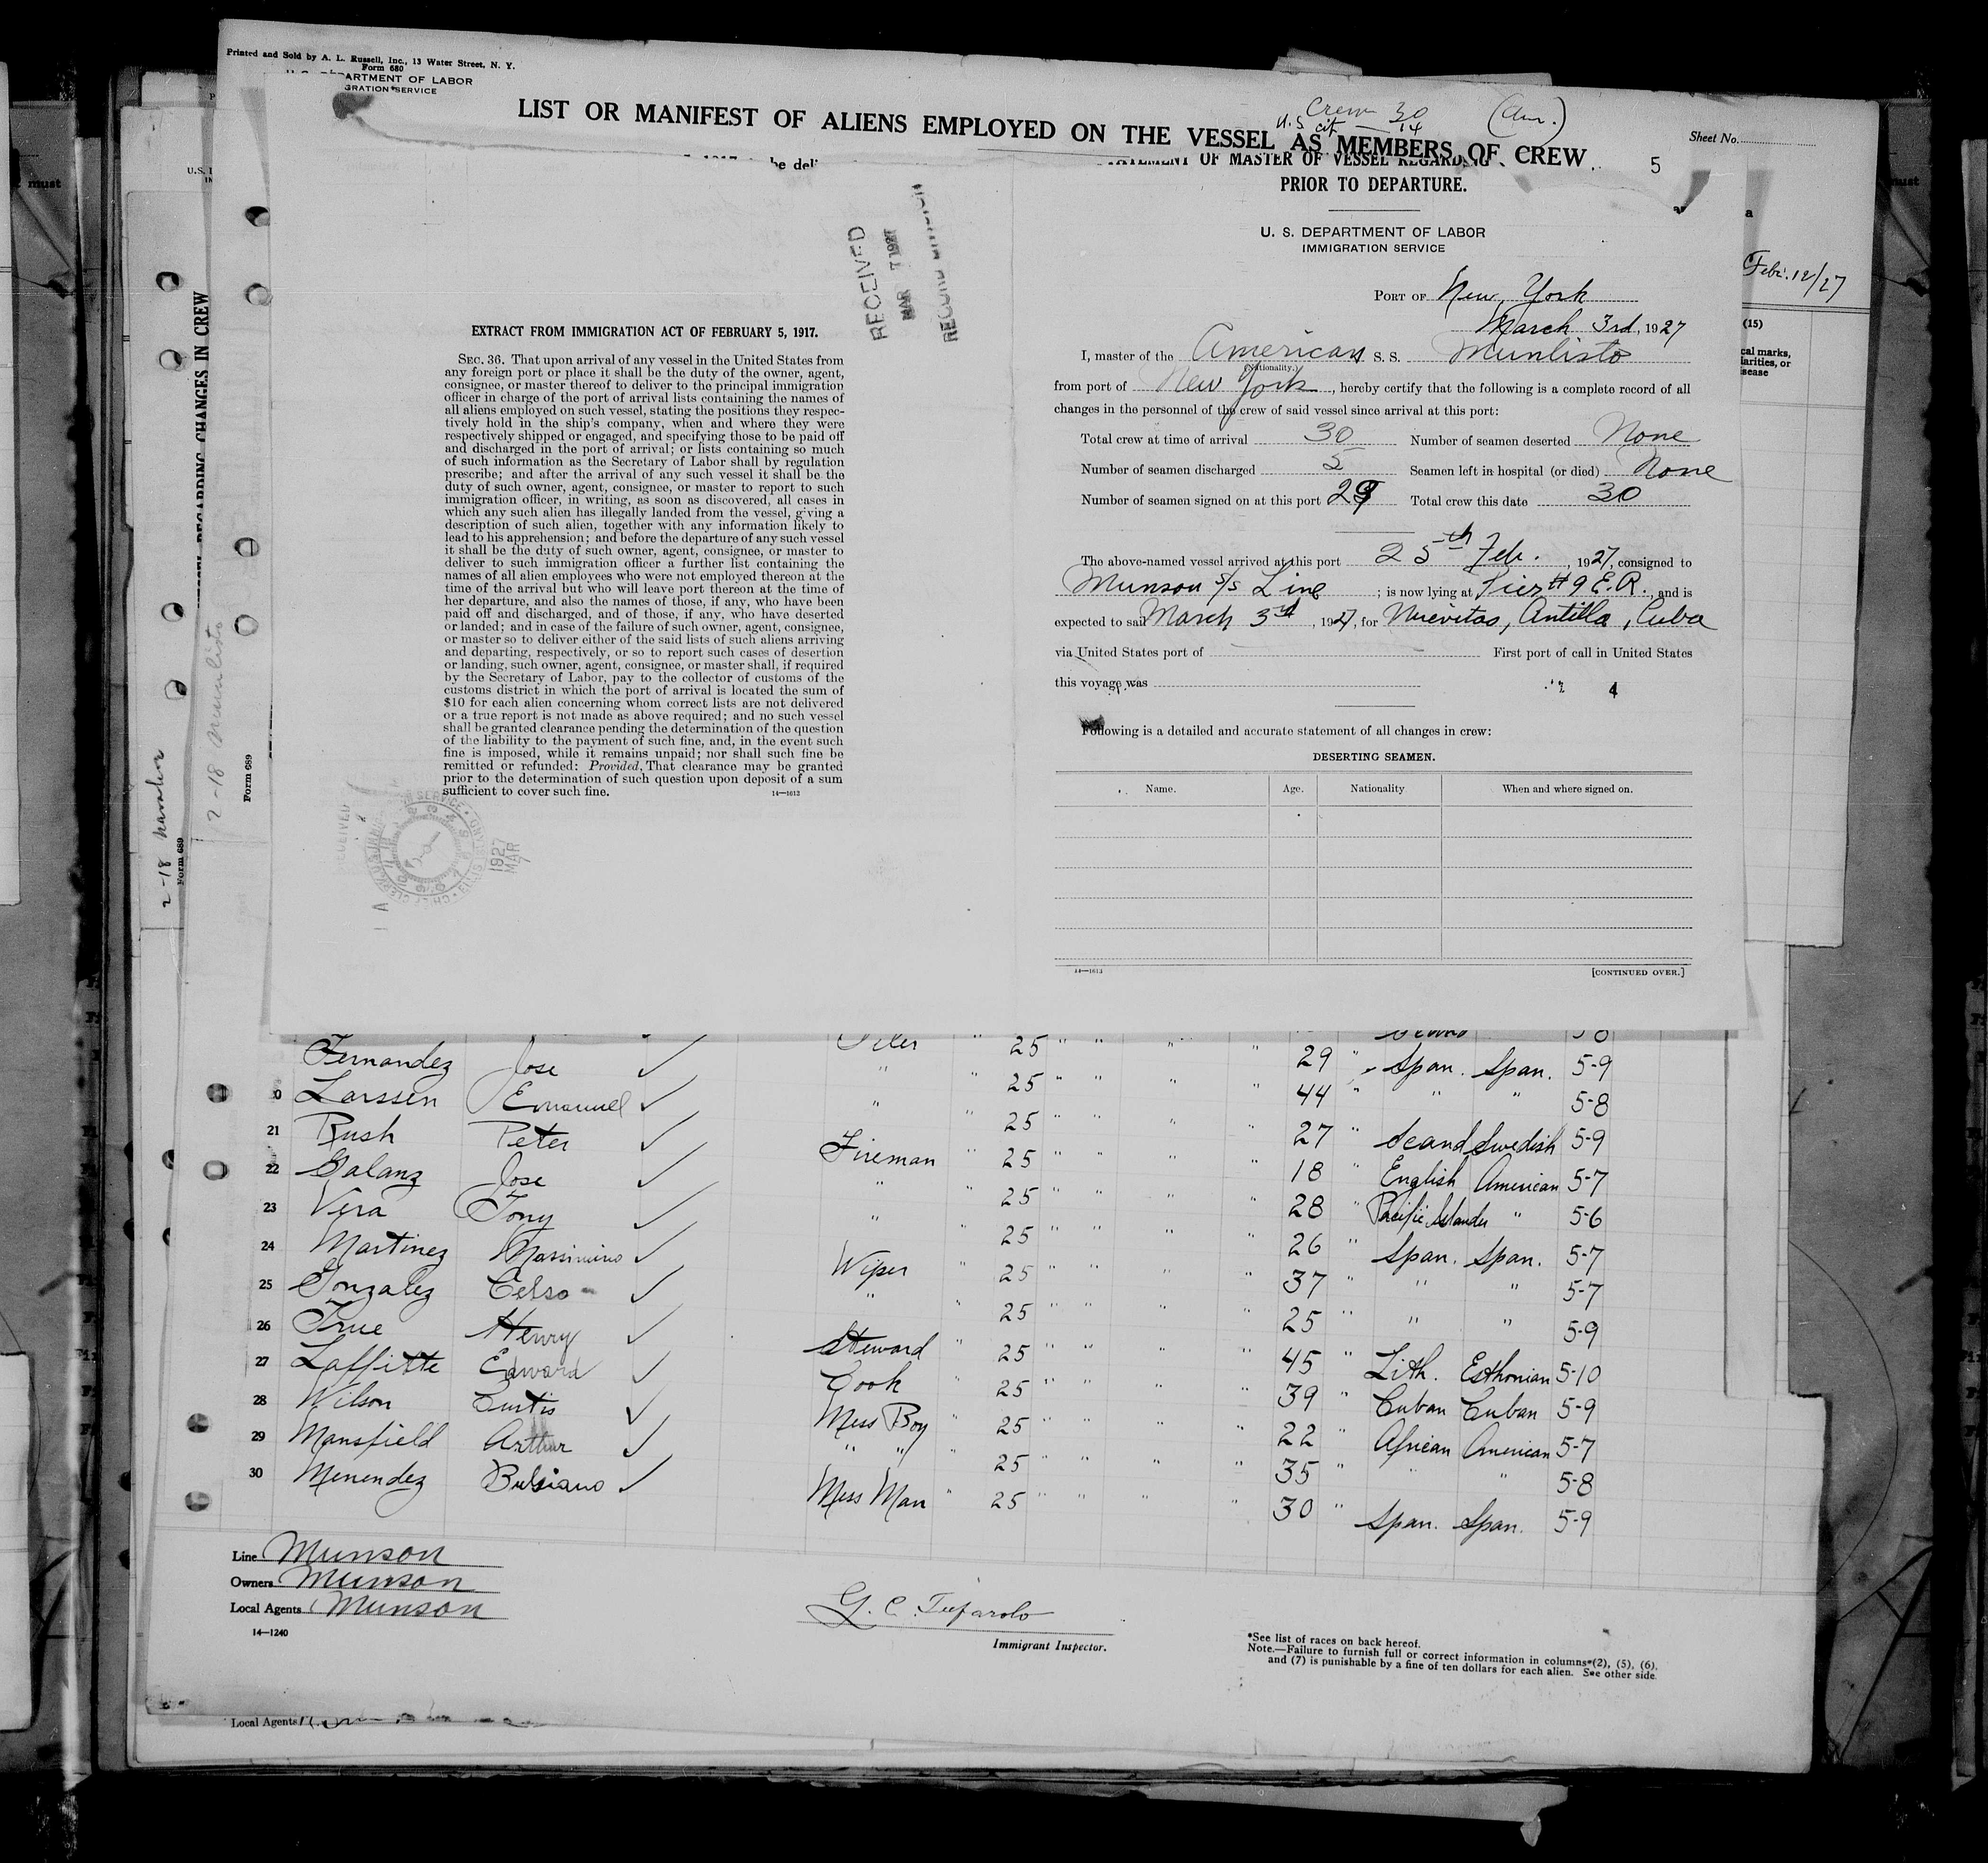 Printed and Sold by A. L. Russell, Inc., 13 Water Street, N. Y.
Form 680
ARTMENT OF LABOR
GRATION SERVICE
LIST OR MANIFEST OF ALIENS EMPLOYED ON THE VESSEL AS MEMBERS OF CREW
Crew 30
U.S cit — 14
(Am.)
Sheet No.
5
STATEMENT OF MASTER OF VESSEL REGARDING
PRIOR TO DEPARTURE.
U. S. DEPARTMENT OF LABOR
IMMIGRATION SERVICE
PORT OF New York
March 3rd, 1927
I, master of the American S. S. Munlisto
(Nationality.)
from port of New York, hereby certify that the following is a complete record of all
changes in the personnel of the crew of said vessel since arrival at this port:
Total crew at time of arrival 30 Number of seamen deserted None
Number of seamen discharged 5 Seamen left in hospital (or died) None
Number of seamen signed on at this port Total crew this date 30
The above-named vessel arrived at this port 25th Feb., 1927, consigned to
Munson S/S Line; is now lying at Pier #9 E.R., and is
expected to sail March 3rd, 1927, for Nuevitas, Antilla, Cuba
via United States port of First port of call in United States
this voyage was
Following is a detailed and accurate statement of all changes in crew:
DESERTING SEAMEN.
Name. Age. Nationality When and where signed on.
14—1613 [CONTINUED OVER.]
RECEIVED
MAR 7 1927
EXTRACT FROM IMMIGRATION ACT OF FEBRUARY 5, 1917.
SEC. 36. That upon arrival of any vessel in the United States from
any foreign port or place it shall be the duty of the owner, agent,
consignee, or master thereof to deliver to the principal immigration
officer in charge of the port of arrival lists containing the names of
all aliens employed on such vessel, stating the positions they respec-
tively hold in the ship's company, when and where they were
respectively shipped or engaged, and specifying those to be paid off
and discharged in the port of arrival; or lists containing so much
of such information as the Secretary of Labor shall by regulation
prescribe; and after the arrival of any such vessel it shall be the
duty of such owner, agent, consignee, or master to report to such
immigration officer, in writing, as soon as discovered, all cases in
which any such alien has illegally landed from the vessel, giving a
description of such alien, together with any information likely to
lead to his apprehension; and before the departure of any such vessel
it shall be the duty of such owner, agent, consignee, or master to
deliver to such immigration officer a further list containing the
names of all alien employees who were not employed thereon at the
time of the arrival but who will leave port thereon at the time of
her departure, and also the names of those, if any, who have been
paid off and discharged, and of those, if any, who have deserted
or landed; and in case of the failure of such owner, agent, consignee,
or master so to deliver either of the said lists of such aliens arriving
and departing, respectively, or so to report such cases of desertion
or landing, such owner, agent, consignee, or master shall, if required
by the Secretary of Labor, pay to the collector of customs of the
customs district in which the port of arrival is located the sum of
$10 for each alien concerning whom correct lists are not delivered
or a true report is not made as above required; and no such vessel
shall be granted clearance pending the determination of the question
of the liability to the payment of such fine, and, in the event such
fine is imposed, while it remains unpaid; nor shall such fine be
remitted or refunded: Provided, That clearance may be granted
prior to the determination of such question upon deposit of a sum
sufficient to cover such fine. 14—1613
1927
MAR 7
REGARDING CHANGES IN CREW
2-18 Munlisto
Form 689
2-18
Form 689
Feb. 12/27
(15)
Fernandez Jose ✓ " " 25 " " " " 29 " Span. Span. 5-9
Larssen Emanuel ✓ " " 25 " " " " 44 " " " 5-8
21 Rush Peter ✓ Fireman " 25 " " " " 27 " Scand Swedish 5-9
22 Galanz Jose ✓ " " 25 " " " " 18 " English American 5-7
23 Vera Tony ✓ " " 25 " " " " 28 " Pacific Islander " 5-6
24 Martinez Massimino ✓ Wiper " 25 " " " " 26 " Span. Span. 5-7
25 Gonzalez Celso ✓ " " 25 " " " " 37 " " " 5-7
26 True Henry ✓ Steward " 25 " " " " 45 " Lith. Esthonian 5-10
27 Laffitte Edward ✓ Cook " 25 " " " " 39 " Cuban Cuban 5-9
28 Wilson Curtis ✓ Mess Boy " 25 " " " " 22 " African American 5-7
29 Mansfield Arthur ✓ " " " 25 " " " " 35 " " " 5-8
30 Menendez ✓ Mess Man " 25 " " " " 30 " Span. Span. 5-9
Line Munson
Owners Munson
Local Agents Munson
14—1240
G. C.
Immigrant Inspector.
*See list of races on back hereof.
Note.—Failure to furnish full or correct information in columns (2), (5), (6),
and (7) is punishable by a fine of ten dollars for each alien. See other side.
Local Agents